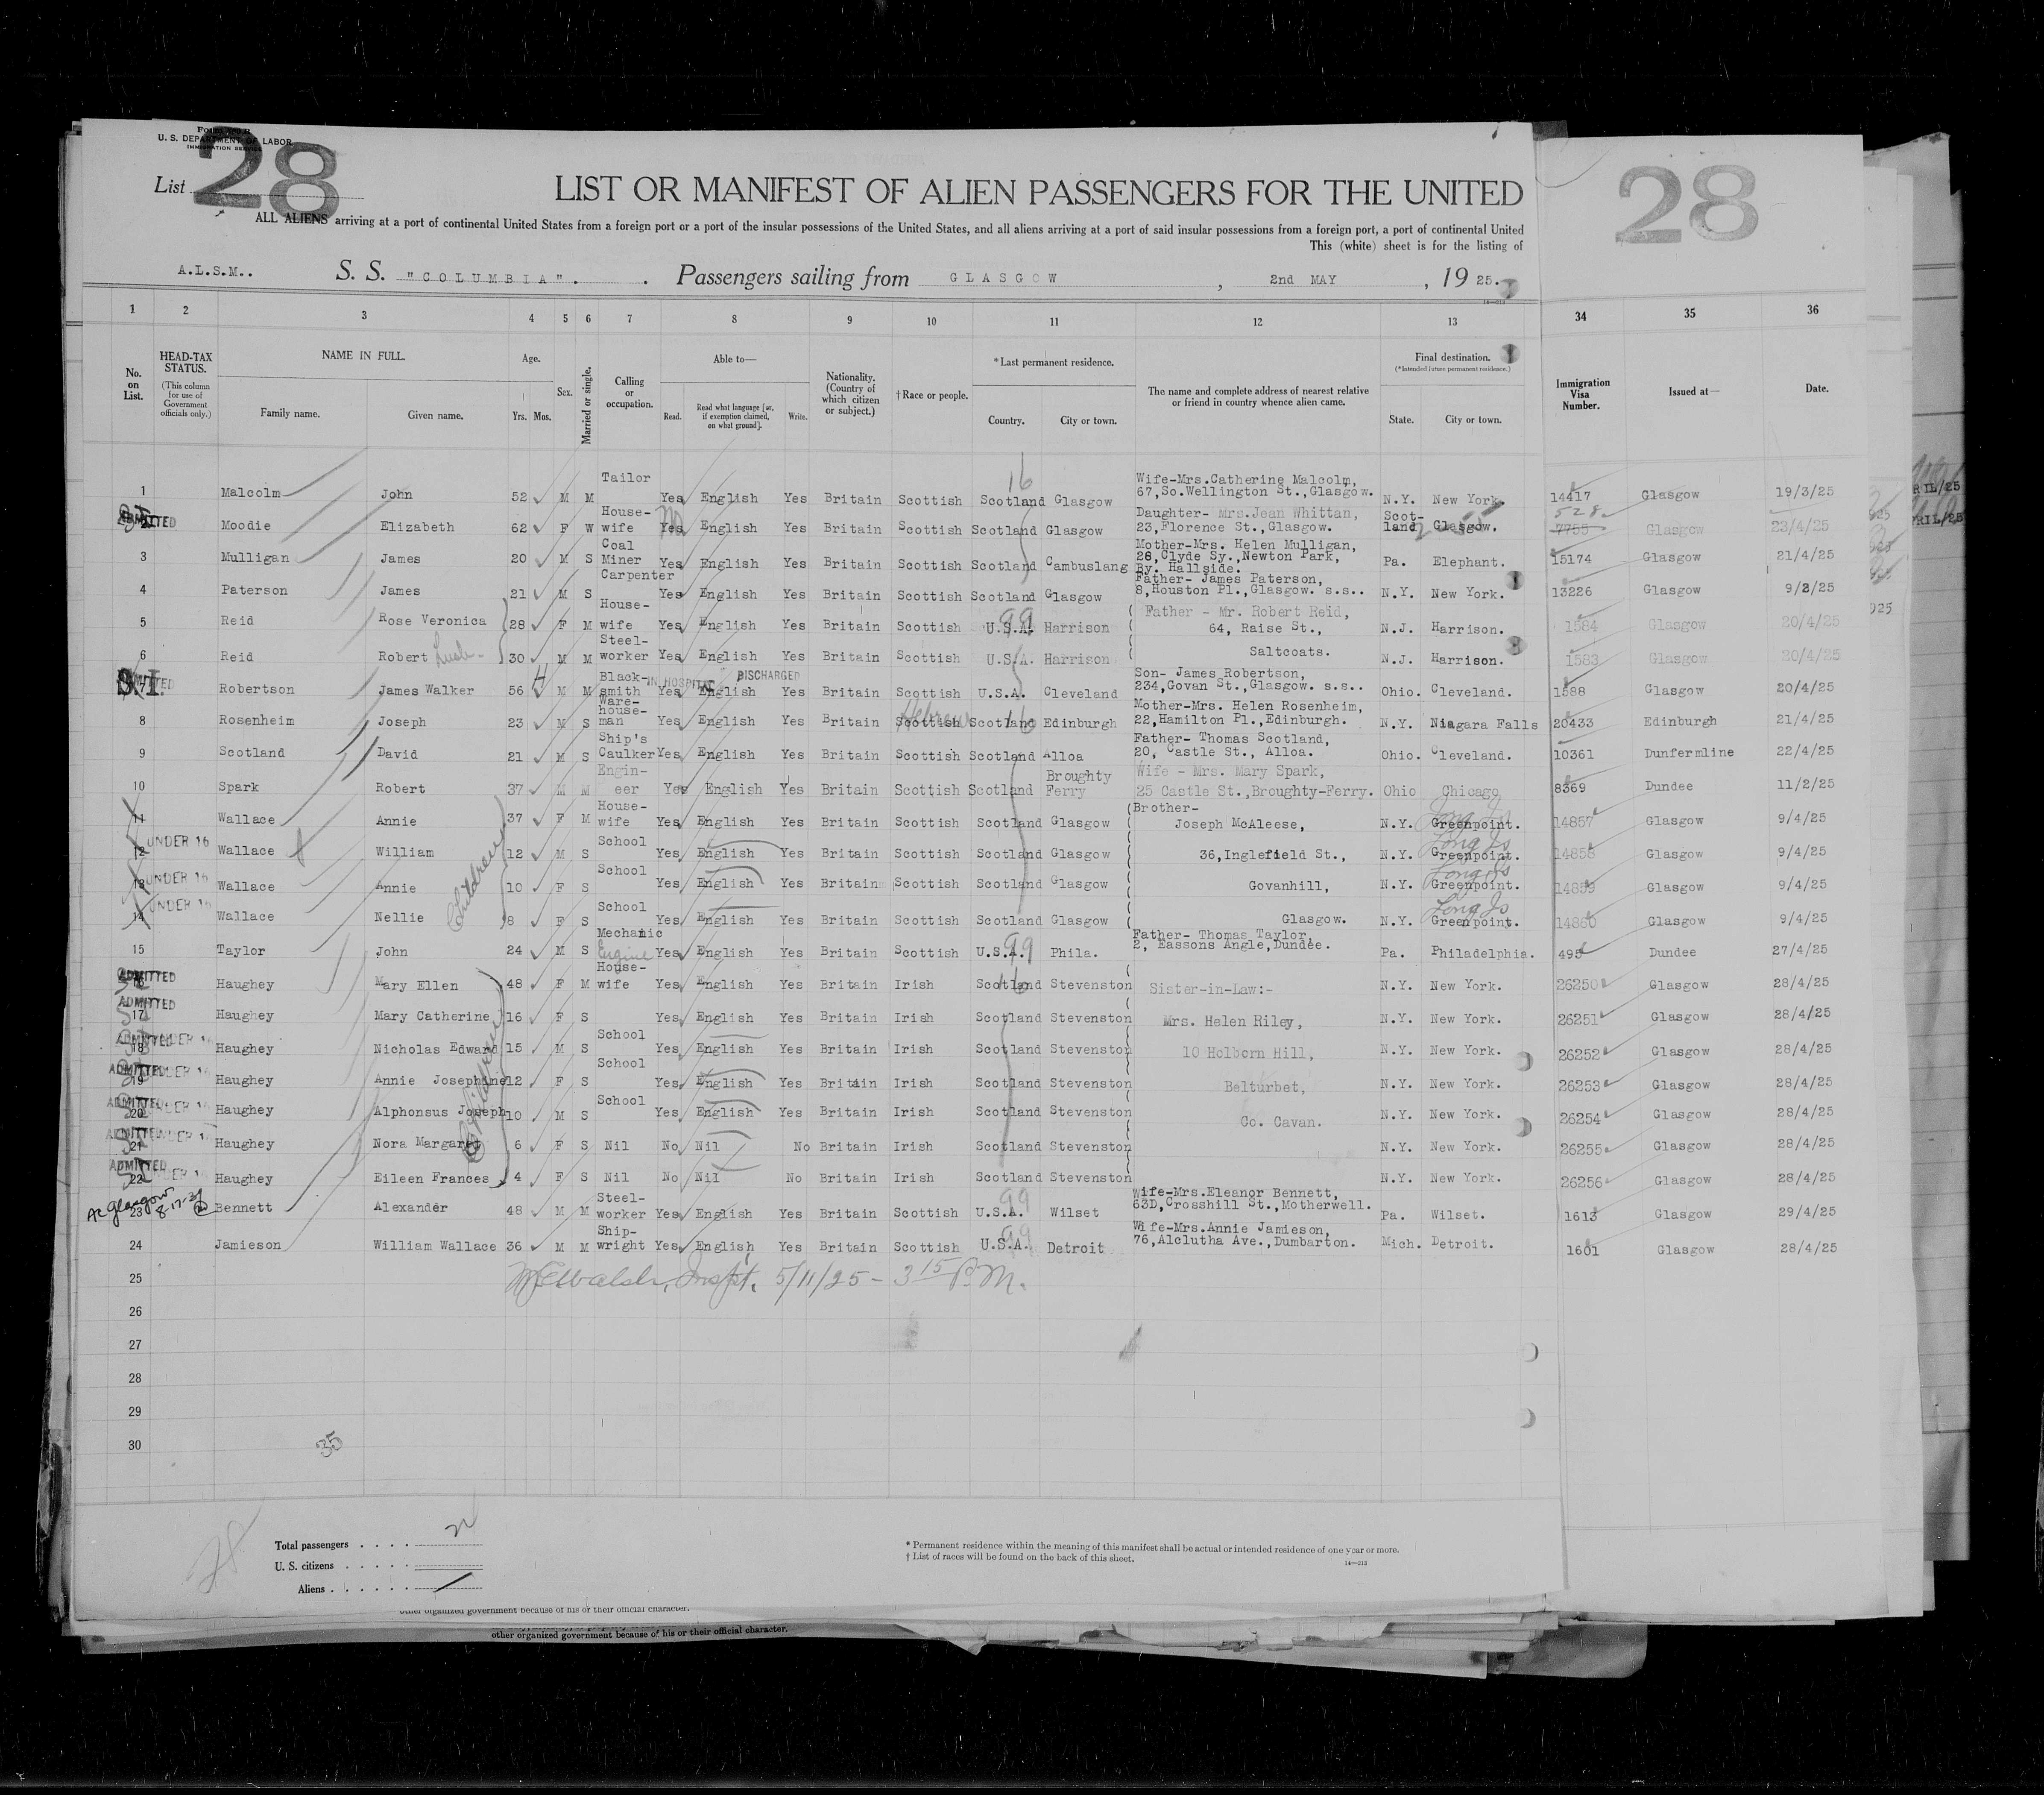 Form 500 B
U. S. DEPARTMENT OF LABOR
IMMIGRATION SERVICE
List 28
LIST OR MANIFEST OF ALIEN PASSENGERS FOR THE UNITED
28
ALL ALIENS arriving at a port of continental United States from a foreign port or a port of the insular possessions of the United States, and all aliens arriving at a port of said insular possessions from a foreign port, a port of continental United
This (white) sheet is for the listing of
A.L.S.M.. S. S. "COLUMBIA". Passengers sailing from GLASGOW, 2nd MAY, 1925.
1 2 3 4 5 6 7 8 9 10 11 12 13 34 35 36
No. on List. HEAD-TAX STATUS. (This column for use of Government officials only.) NAME IN FULL. Family name. Given name. Age. Yrs. Mos. Sex. Married or single. Calling or occupation. Able to— Read. Read what language [or, if exemption claimed, on what ground]. Write. Nationality. (Country of which citizen or subject.) † Race or people. *Last permanent residence. Country. City or town. The name and complete address of nearest relative or friend in country whence alien came. Final destination. (*Intended future permanent residence.) State. City or town. Immigration Visa Number. Issued at— Date.
1 Malcolm John 52 M M Tailor Yes English Yes Britain Scottish Scotland 16 Glasgow Wife-Mrs.Catherine Malcolm, 67,So.Wellington St.,Glasgow. N.Y. New York. 14417 Glasgow 19/3/25
ADMITTED Moodie Elizabeth 62 F W House-wife Yes No English Yes Britain Scottish Scotland Glasgow Daughter- Mrs.Jean Whittan, 23,Florence St.,Glasgow. Scot-land Glasgow. 7755 528 Glasgow 23/4/25
3 Mulligan James 20 M S Coal Miner Yes English Yes Britain Scottish Scotland Cambuslang Mother-Mrs. Helen Mulligan, 28,Clyde Sy.,Newton Park, By. Hallside. Pa. Elephant. 15174 Glasgow 21/4/25
4 Paterson James 21 M S Carpenter Yes English Yes Britain Scottish Scotland Glasgow Father- James Paterson, 8,Houston Pl.,Glasgow. s.s.. N.Y. New York. 13226 Glasgow 9/2/25
5 Reid Rose Veronica 28 F M House-wife Yes English Yes Britain Scottish U.S.A. 99 Harrison Father - Mr. Robert Reid, 64, Raise St., N.J. Harrison. 1584 Glasgow 20/4/25
6 Reid Robert 30 M M Steel-worker Yes English Yes Britain Scottish U.S.A. Harrison Saltcoats. N.J. Harrison. 1583 Glasgow 20/4/25
S.I. ADMITTED 7 Robertson James Walker 56 H M M Black-smith IN HOSPITAL DISCHARGED Yes English Yes Britain Scottish U.S.A. Cleveland Son- James Robertson, 234,Govan St.,Glasgow. s.s.. Ohio. Cleveland. 1588 Glasgow 20/4/25
8 Rosenheim Joseph 23 M S Ware-house-man Yes English Yes Britain Scottish Hebrew Scotland 16 Edinburgh Mother-Mrs. Helen Rosenheim, 22,Hamilton Pl.,Edinburgh. N.Y. Niagara Falls 20433 Edinburgh 21/4/25
9 Scotland David 21 M S Ship's Caulker Yes English Yes Britain Scottish Scotland Alloa Father- Thomas Scotland, 20, Castle St., Alloa. Ohio. Cleveland. 10361 Dunfermline 22/4/25
10 Spark Robert 37 M M Engin-eer Yes English Yes Britain Scottish Scotland Broughty Ferry Wife - Mrs. Mary Spark, 25 Castle St.,Broughty-Ferry. Ohio Chicago 8369 Dundee 11/2/25
11 Wallace Annie 37 F M House-wife Yes English Yes Britain Scottish Scotland Glasgow Brother- Joseph McAleese, N.Y. Greenpoint. Long Is 14857 Glasgow 9/4/25
12 UNDER 16 Wallace William 12 M S School Yes English Yes Britain Scottish Scotland Glasgow 36,Inglefield St., N.Y. Greenpoint. Long Is 14858 Glasgow 9/4/25
13 UNDER 16 Wallace Annie Children 10 F S School Yes English Yes Britain Scottish Scotland Glasgow Govanhill, N.Y. Greenpoint. Long Is 14859 Glasgow 9/4/25
14 UNDER 16 Wallace Nellie 8 F S School Yes English Yes Britain Scottish Scotland Glasgow Glasgow. N.Y. Greenpoint. Long Is 14860 Glasgow 9/4/25
15 Taylor John 24 M S Mechanic Engine Yes English Yes Britain Scottish U.S.A. 99 Phila. Father- Thomas Taylor, 2, Eassons Angle,Dundee. Pa. Philadelphia. 495 Dundee 27/4/25
ADMITTED 16 Haughey Mary Ellen 48 F M House-wife Yes English Yes Britain Irish Scotland 16 Stevenston Sister-in-Law:- N.Y. New York. 26250 Glasgow 28/4/25
ADMITTED 17 Haughey Mary Catherine 16 F S Yes English Yes Britain Irish Scotland Stevenston Mrs. Helen Riley, N.Y. New York. 26251 Glasgow 28/4/25
ADMITTED UNDER 16 18 Haughey Nicholas Edward 15 M S School Yes English Yes Britain Irish Scotland Stevenston 10 Holborn Hill, N.Y. New York. 26252 Glasgow 28/4/25
ADMITTED UNDER 16 19 Haughey Annie Josephine 12 F S School Yes English Yes Britain Irish Scotland Stevenston Belturbet, N.Y. New York. 26253 Glasgow 28/4/25
ADMITTED UNDER 16 20 Haughey Alphonsus Joseph Children 10 M S School Yes English Yes Britain Irish Scotland Stevenston Co. Cavan. N.Y. New York. 26254 Glasgow 28/4/25
ADMITTED UNDER 16 21 Haughey Nora Margaret 6 F S Nil No Nil No Britain Irish Scotland Stevenston N.Y. New York. 26255 Glasgow 28/4/25
ADMITTED UNDER 16 22 Haughey Eileen Frances 4 F S Nil No Nil No Britain Irish Scotland Stevenston N.Y. New York. 26256 Glasgow 28/4/25
Glasgow 23 Bennett Alexander 48 M M Steel-worker Yes English Yes Britain Scottish U.S.A. 99 Wilset Wife-Mrs.Eleanor Bennett, 63D,Crosshill St.,Motherwell. Pa. Wilset. 1613 Glasgow 29/4/25
24 Jamieson William Wallace 36 M M Ship-wright Yes English Yes Britain Scottish U.S.A. 99 Detroit Wife-Mrs.Annie Jamieson, 76,Alclutha Ave.,Dumbarton. Mich. Detroit. 1601 Glasgow 28/4/25
25 Walsh, Inspt. 5/11/25 - 3 15 P.M.
26
27
28
29
30
35
28
Total passengers . . . .
U. S. citizens . . . . .
Aliens . . . . . .
* Permanent residence within the meaning of this manifest shall be actual or intended residence of one year or more.
† List of races will be found on the back of this sheet.
14—213
other organized government because of his or their official character.
other organized government because of his or their official character.